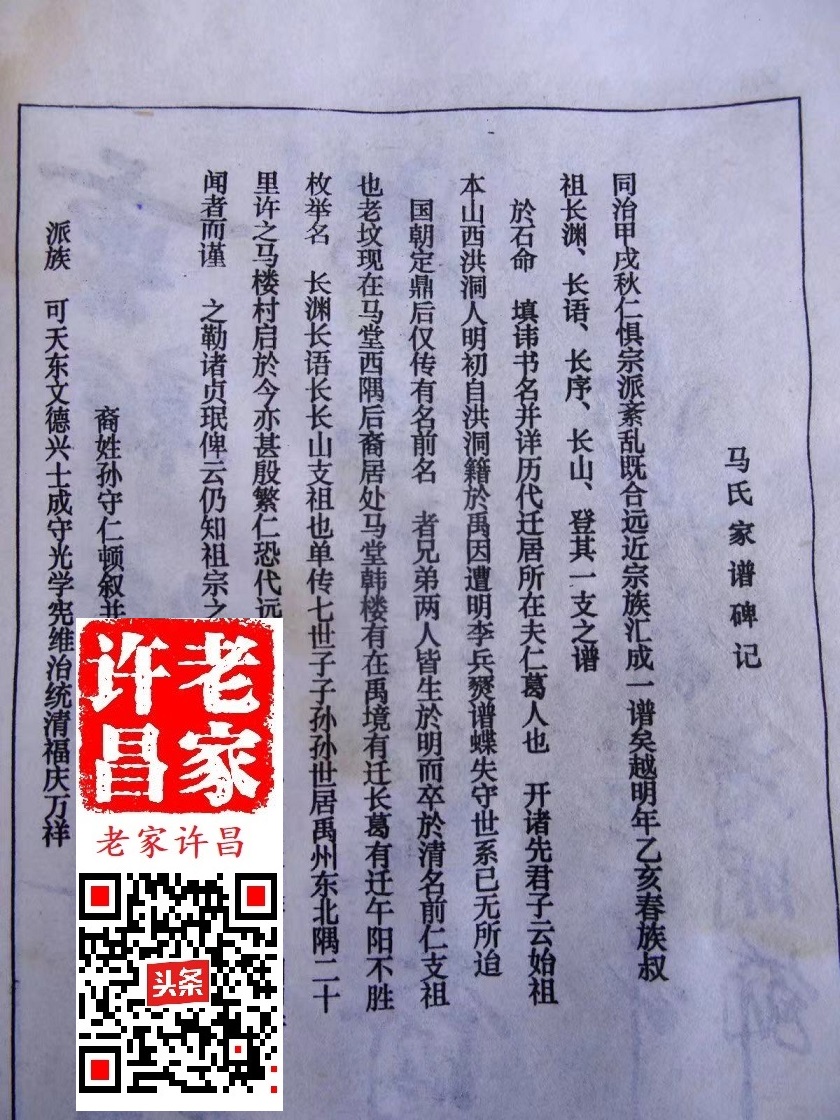 马氏家谱碑记
同治甲戌秋仁惧宗派紊乱既合远近宗族汇成一谱矣越明年乙亥春族叔
祖长渊、长语、长序、长山、登其一支之谱
於石命 填讳书名并详历代迁居所在夫仁葛人也 开诸先君子云始祖
本山西洪洞人明初自洪洞籍於禹因遭明李兵燹谱蝶失守世系已无所迨
国朝定鼎后仅传有名前名 者兄弟两人皆生於明而卒於清名前仁支祖
也老坟现在马堂西隅后裔居处马堂韩楼有在禹境有迁长葛有迁午阳不胜
枚举名 长渊长语长长山支祖也单传七世子子孙孙世居禹州东北隅二十
里许之马楼村启於今亦甚殷繁仁恐代远
闻者而谨 之勒诸贞珉俾云仍知祖宗之
裔姓孙守仁顿叙并
派族 可天东文德兴士成守光学宪维治统清福庆万祥
老家许昌
老家许昌
头条